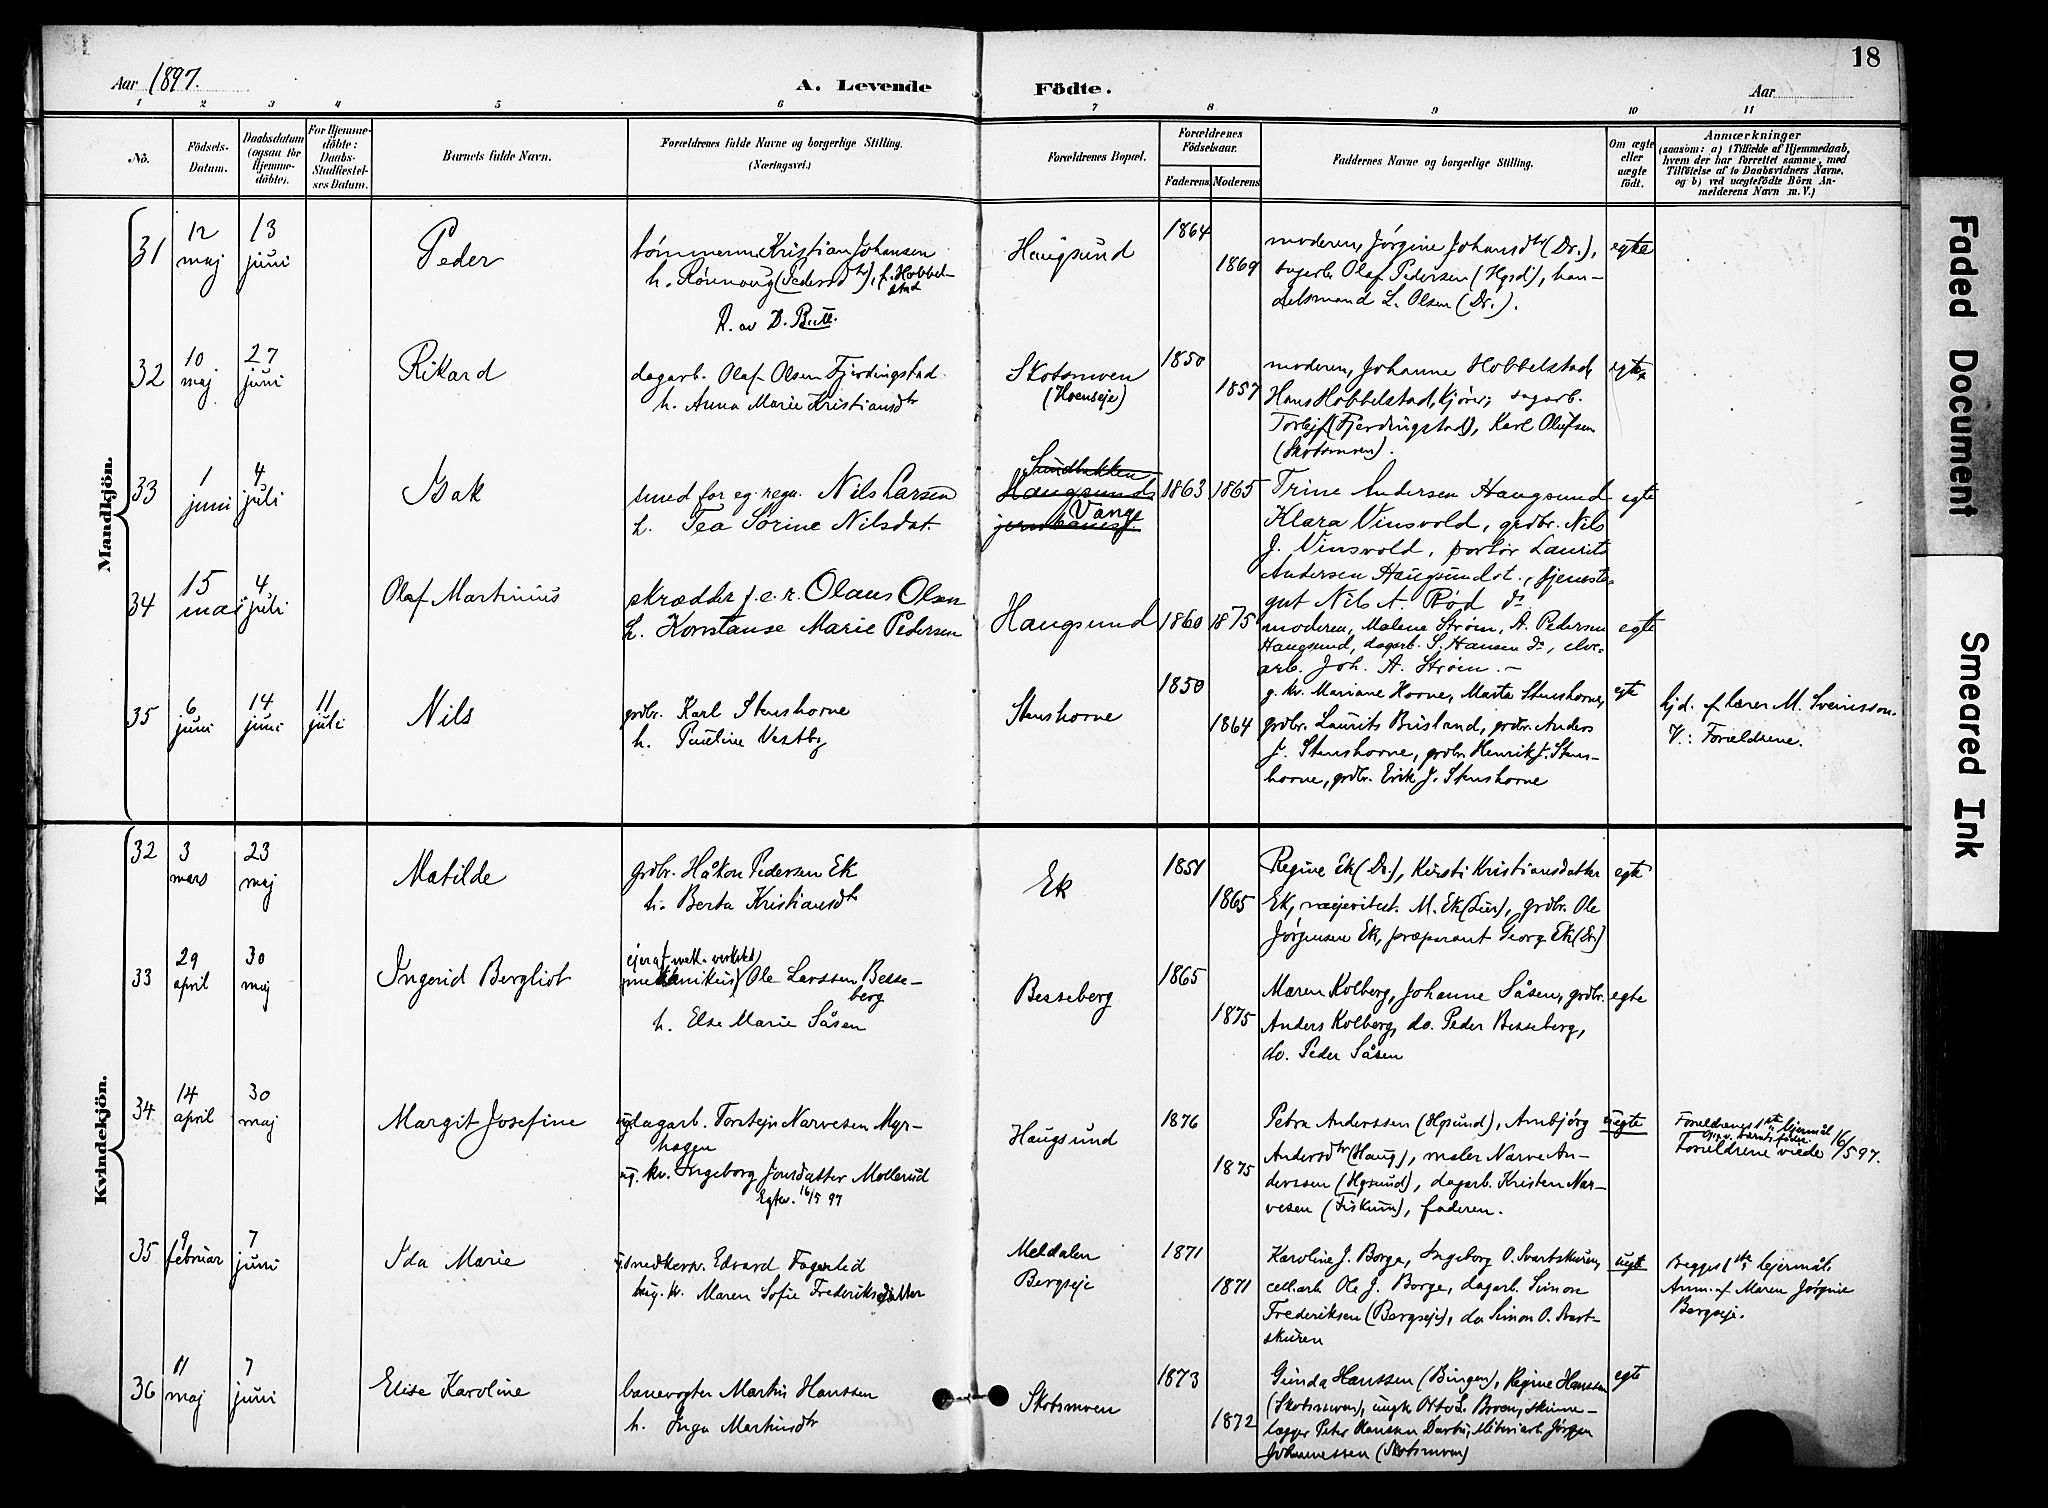 18
Aar 1897.
A. Levende Födte.
Aar
1 2 3 4 5 6 7 8 9 10 11
No.
Födsels-Datum.
Daabsdatum (ogsaa for Hjemme-döbte).
For Hjemme-döbte: Daabs-Stadfæstel-ses Datum.
Barnets fulde Navn.
Forældrenes fulde Navne og borgerlige Stilling. (Næringsvei.)
Forældrenes Bopæl.
Forældrenes Födselsaar.
Faderens. Moderens.
Faddernes Navne og borgerlige Stilling.
Om ægte eller uægte födt.
Anmærkninger
(saasom: a) i Tilfælde af Hjemmedaab,
hvem der har forrettet samme, med
Tilföielse af to Daabsvidners Navne,
og b) ved uægtefödte Börn An-
melderens Navn m. V.)
Mandkjön.
31 12 maj 13 juni Peder
tømmerm. Kristian Johansen
h. Rønnaug (Pedersdtr), f. Hobbel-
stad
Haugsund 1864 1869
moderen, Jørgine Johansdtr (Dr.),
sagarb. Olaf Pedersen (Hgsd), han-
delsmand L. Olsen (Dr.).
egte
32 10 maj 27 juni Rikard
dagarb. Olaf Olsen Fjerdingstad
h. Anna Marie Kristiansdtr
Skotsmoen
(Hoenseje)
1850 1857
moderen, Johanne Hobbelstad,
Hans Hobbelstad, kjører, sagarb.
Torbjf (Fjerdingstad), Karl Olufsen
(Skotsmoen).
egte
33 1 juni 4 juli Isak
smed for eg. regn. Nils Larsen
h. Tea Sorine Nilsdat.
Sundbakken
Haugsund
Vang
1863 1865
Trine Andersen Haugsund
Klara Vinsvold, grdbr. Nils
J. Vinsvold, portør Laurits
Andersen Haugsundst., tjeneste-
gut Nils A. Rød do
egte
34 15 mai 4 juli Olaf Martinius
skrædder f. e. r. Olaus Olsen
h. Konstanse Marie Pedersen
Haugsund 1860 1875
moderen, Malene Strøm, A. Pedersen
Haugsund, dagarb. S. Hansen do, elve-
arb. Joh. A. Strøm. -
egte
35 6 juni 14 juni 11 juli Nils
grdbr. Karl Stenshorne
h. Pauline Vestby
Stenshorne 1850 1864
g. kv. Mariane Horne, Marta Stenshorne,
grdbr. Laurits Brustand, grdbr. Anders
J. Stenshorne, grdbr. Henrik J. Stens-
horne, grdbr. Erik J. Stenshorne
egte
hjd. af lærer M. Sveinsson.
V.: Forældrene.
Kvindekjön.
32 3 mars 23 maj Matilde
grdbr. Håkon Pedersen Ek
h. Berta Kristiansdtr
Ek 1851 1865
Regine Ek (Dr.), Kirsti Kristiansdatter
Ek, M. Ek (Lier), grdbr. Ole
Jørgensen Ek, præparant Georg Ek
egte
33 29 april 30 maj Ingerid Bergliot
ejer af mek. verksted
mekanikus Ole Larssen Besse-
berg
h. Else Marie Såsen
Besseberg 1865 1875
Maren Kolberg, Johanne Såsen, grdbr.
Anders Kolberg, do. Peder Besseberg,
do. Peder Såsen
egte
34 14 april 30 maj Margit Josefine
ug. dagarb. Torstejn Narvesen Myr-
hagen
ug. kv. Ingeborg Jonsdatter Møllerud
Egtev. 16/5 97
Haugsund 1876 1875
Petra Anderssen (Hgsund), Arnbjørg
Andersdtr (Haug), maler Narve An-
derssen (Hgsund), dagarb. Kristen Nar-
vesen (Fiskum), faderen.
uegte
Forældrenes 1ste lejermål
Forældrene viede 16/5 97.
35 9 februar 7 juni Ida Marie
snedkersv. Edvard Fagerlid
ug. kv. Maren Sofie Frederiksdatter
Meldalen
Bergseje
1871 1871
Karoline J. Borge, Ingeborg O. Svartskuren,
cell.arb. Ole J. Borge, dagarb. Simon
Frederiksen (Bergseje), do Simon O. Svart-
skuren
uegte
Begges 1ste lejermål.
Anm. af Maren Jørgine
Bergseje.
36 11 maj 7 juni Elise Karoline
banevogter Martin Hanssen
h. Inga Martinsdtr
Skotsmoen 1873 1872
Gunda Hanssen (Bingen), Regine Hanssen
(Skotsmoen), ungk. Otto L. Broen, skinne-
lægger Peter Hanssen Darbu, Jørgen
Johannessen (Skotsmoen)
egte
Faded Document
Smeared Ink